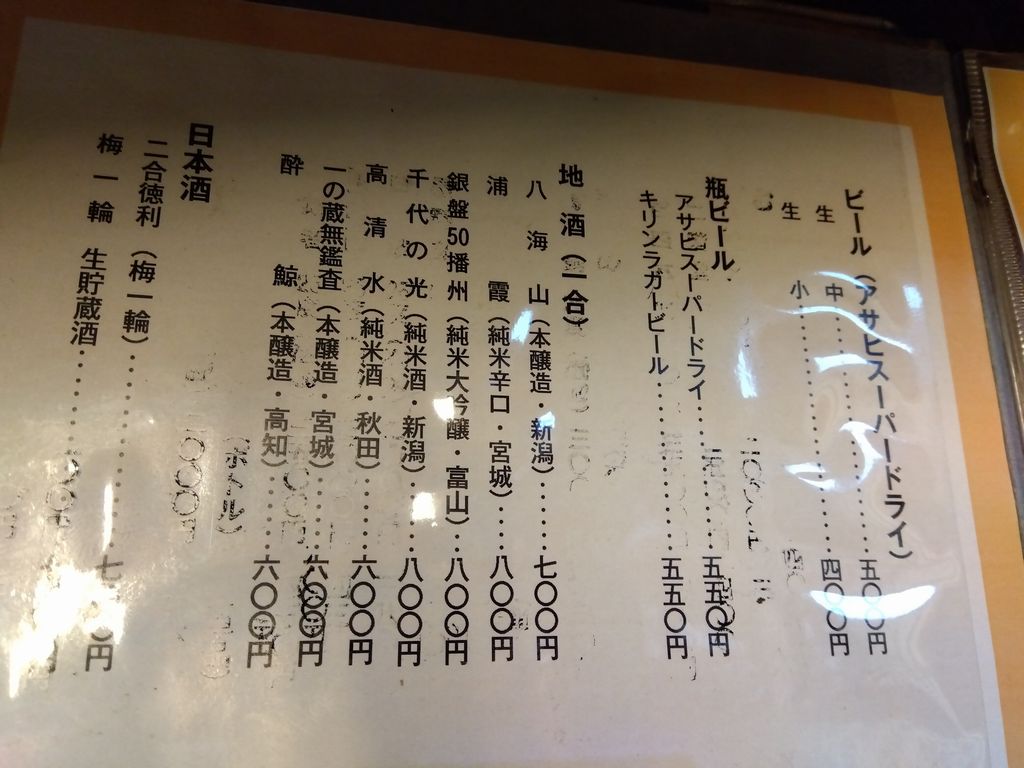 ビール（アサヒスーパードライ）
生　中‥‥‥‥‥‥五〇〇円
生　小‥‥‥‥‥‥四〇〇円
瓶ビール
アサヒスーパードライ‥‥‥五五〇円
キリンラガービール‥‥‥‥五五〇円
地　酒（一合）
八海山（本醸造・新潟）‥‥‥七〇〇円
浦　霞（純米辛口・宮城）‥‥八〇〇円
銀盤50播州（純米大吟醸・富山）‥八〇〇円
千代の光（純米酒・新潟）‥‥八〇〇円
高清水（純米酒・秋田）‥‥‥六〇〇円
一の蔵無鑑査（本醸造・宮城）‥‥六〇〇円
酔　鯨（本醸造・高知）‥‥‥六〇〇円
日本酒
二合徳利（梅一輪）‥‥‥‥‥七〇〇円
梅一輪　生貯蔵酒‥‥‥